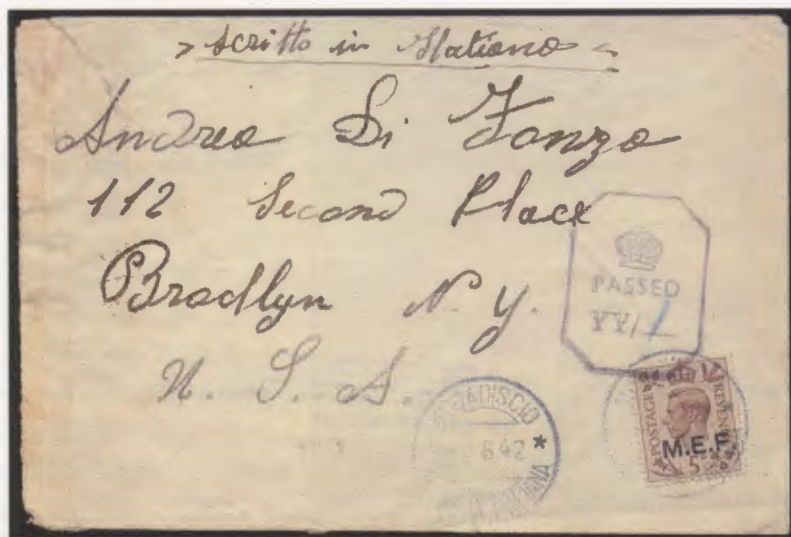 > Scritto in Italiano <
Andrea Di Fonzo
112 Second Place
Brodlyn N.Y.
U. S. A.
PASSED
YY/
DISCIO
6 42 *
POSTAGE REVENUE
M.E.F.
5